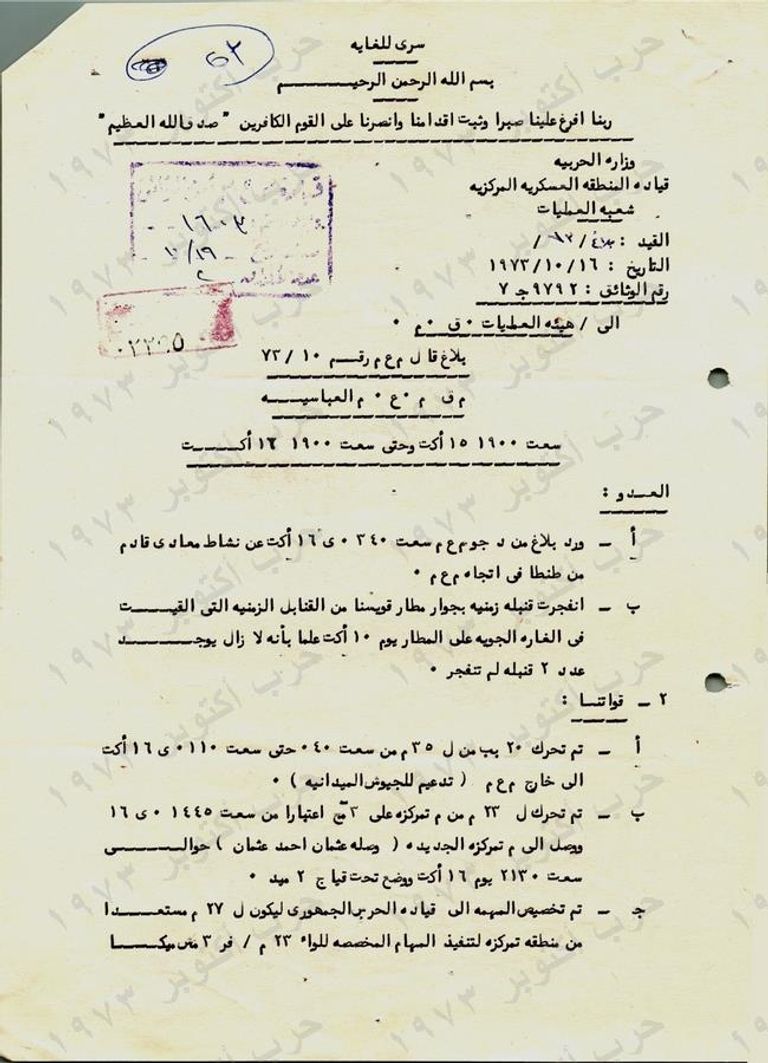 سرى للغايه
٦٣
بسم الله الرحمن الرحيـــــم
ربنا افرغ علينا صبرا وثبت اقدامنا وانصرنا على القوم الكافرين " صدق الله العظيم "
وزاره الحربيه
قياده المنطقه العسكريه المركزيه
شعبه العمليات
القيد :
التاريخ : ١٩٧٣/١٠/١٦
رقم الوثائق : ٩٧٩٢ج ٧
١٦٠٣
١٠/١٩
٢
الى / هيئه العمليات ٠ ق ٠ م ٠
بلاغ قتال م ع م رقــم ١٠ / ٧٣
م ق م ٠ ع ٠ م العباسيـــه
سعت ١٩٠٠ ١٥ أكت وحتى سعت ١٩٠٠ ١٦ أكــــت
العــدو :
أ ــ ورد بلاغ من د جو م ع م سعت ٠٣٤٠ ى ١٦ أكت عن نشاط معادى قادم
من طنطا فى اتجاه م ع م ٠
ب ــ انفجرت قنبله زمنيه بجوار مطار قويسنا من القنابل الزمنيه التى القيــــت
فى الغاره الجويه على المطار يوم ١٠ أكت علما بأنه لا زال يوجــــــد
عدد ٢ قنبله لم تنفجر ٠
٢ ــ قواتنــا :
أ ــ تم تحرك ٢٠ بب من ل ٣٥ م من سعت ٠٤٠ حتى سعت ٠١١٠ ى ١٦ أكت
الى خارج م ع م ( تدعيم للجيوش الميدانيه ) ٠
ب ــ تم تحرك ل ٢٣ م من م تمركزه على ٣ اعتبارا من سعت ١٤٤٥ ٠ ى ١٦
ووصل الى م تمركزة الجديده ( وصله عثمان احمد عثمان ) حوالــــى
سعت ٢١٣٠ يوم ١٦ أكت ووضع تحت قيا ج ٢ ميد ٠
جـ ــ تم تخصيص المهمه الى قياده الحرس الجمهورى ليكون ل ٢٧ م مستعــــدا
من منطقه تمركزه لتنفيذ المهام المخصصه للواء ٢٣ م / فر ٣ مش ميكـــا
حرب أكتوبر ١٩٧٣